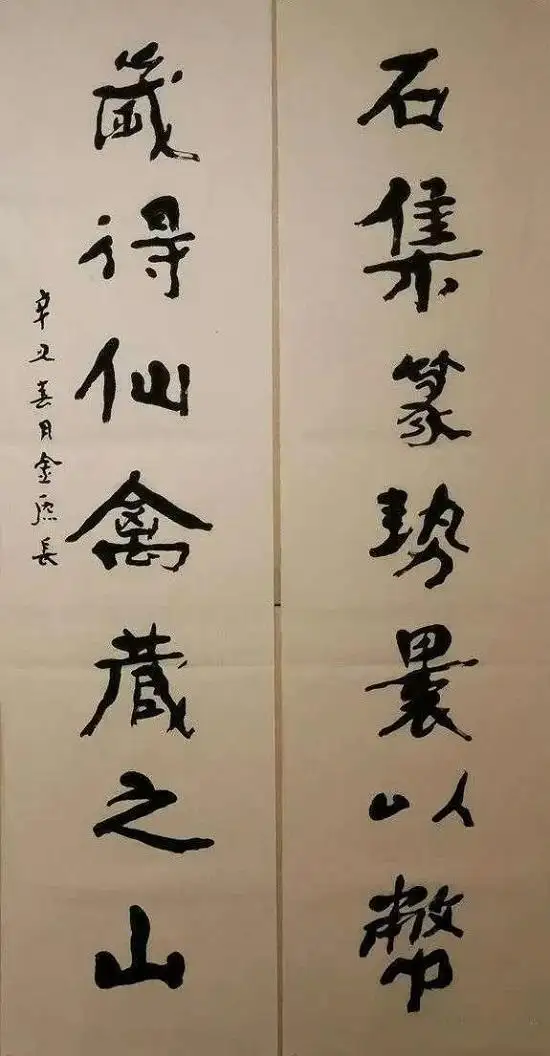 石集篆勢裹以幣
箴得仙禽藏之山
辛丑春月金長